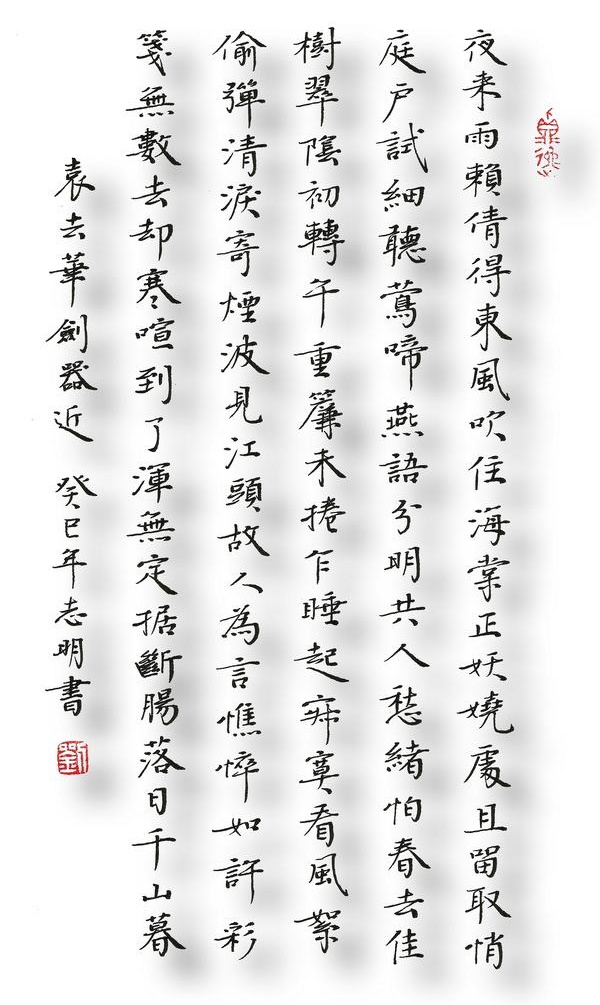 夜来雨賴倩得東風吹住海棠正妖嬈處且留取悄
庭户試細聽鶯啼燕語分明共人愁緒怕春去佳
樹翠陰初轉午重簾未捲乍睡起寂寞看風絮
偷彈清淚寄煙波見江頭故人為言憔悴如許彩
箋無數去却寒喧到了渾無定据斷腸落日千山暮
袁去華劍器近 癸巳年志明書
劉